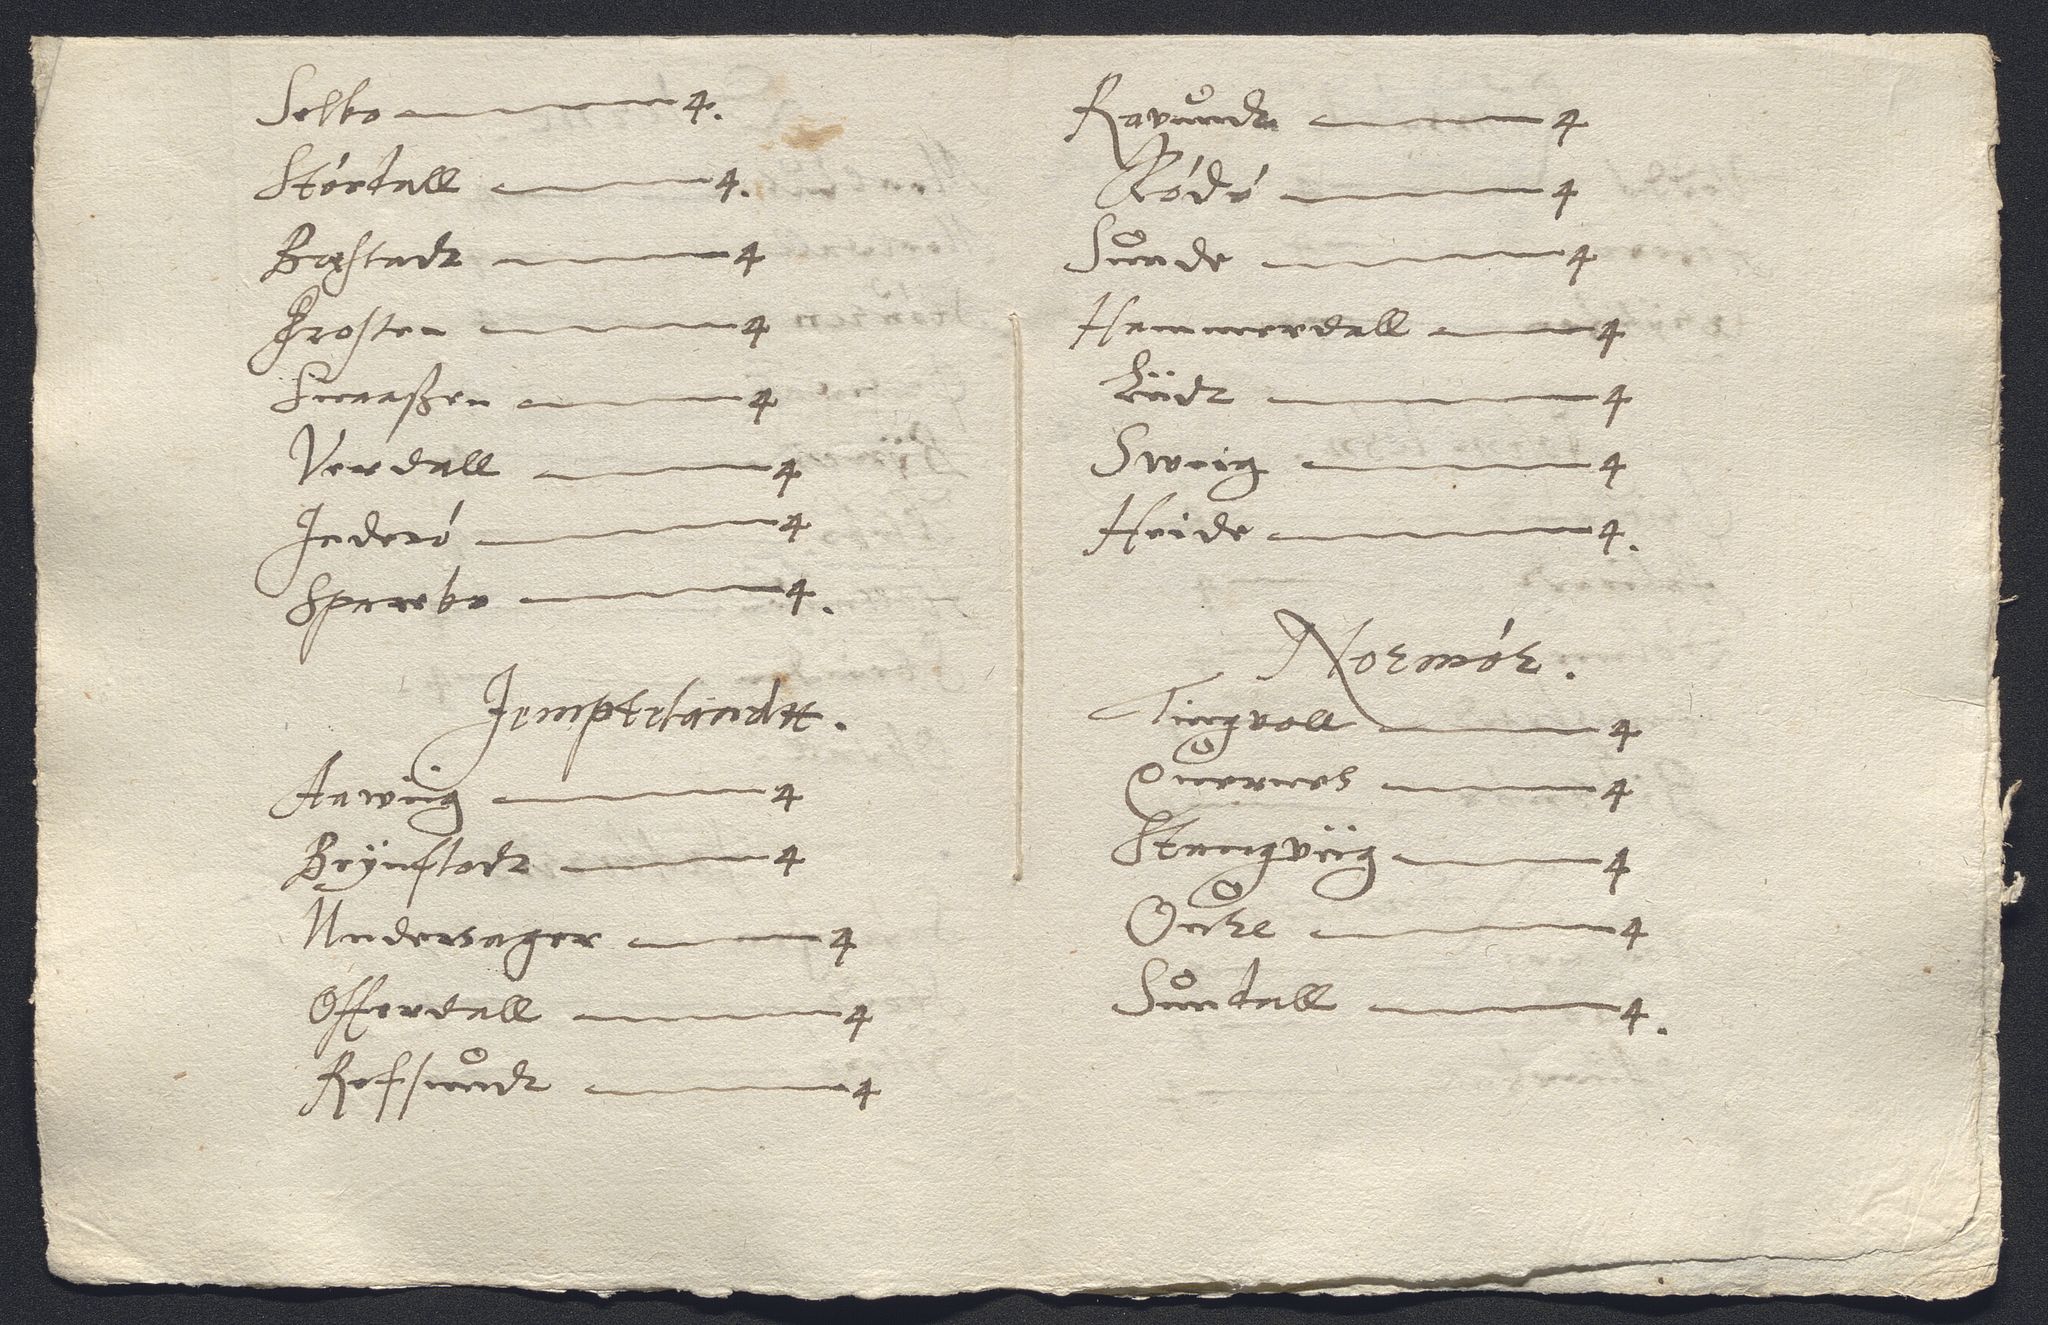 Selbo 4.
Størdall 4.
Begstadt 4
Frosten 4
Snaaßen 4
Verdall 4
Inderø 4
Sparebo 4.
Jemptelandtt.
Aawiig 4
Brÿnstadt 4
Undersager 4
Offerdall 4
Refsundt 4
Ravundt 4
Rødø 4
Sunde 4
Hammerdall 4
Liidt 4
Sweig 4
Heide 4.
Normør.
Tingvoll 4
Quernes 4
Stangviig 4
4
Sundall 4.